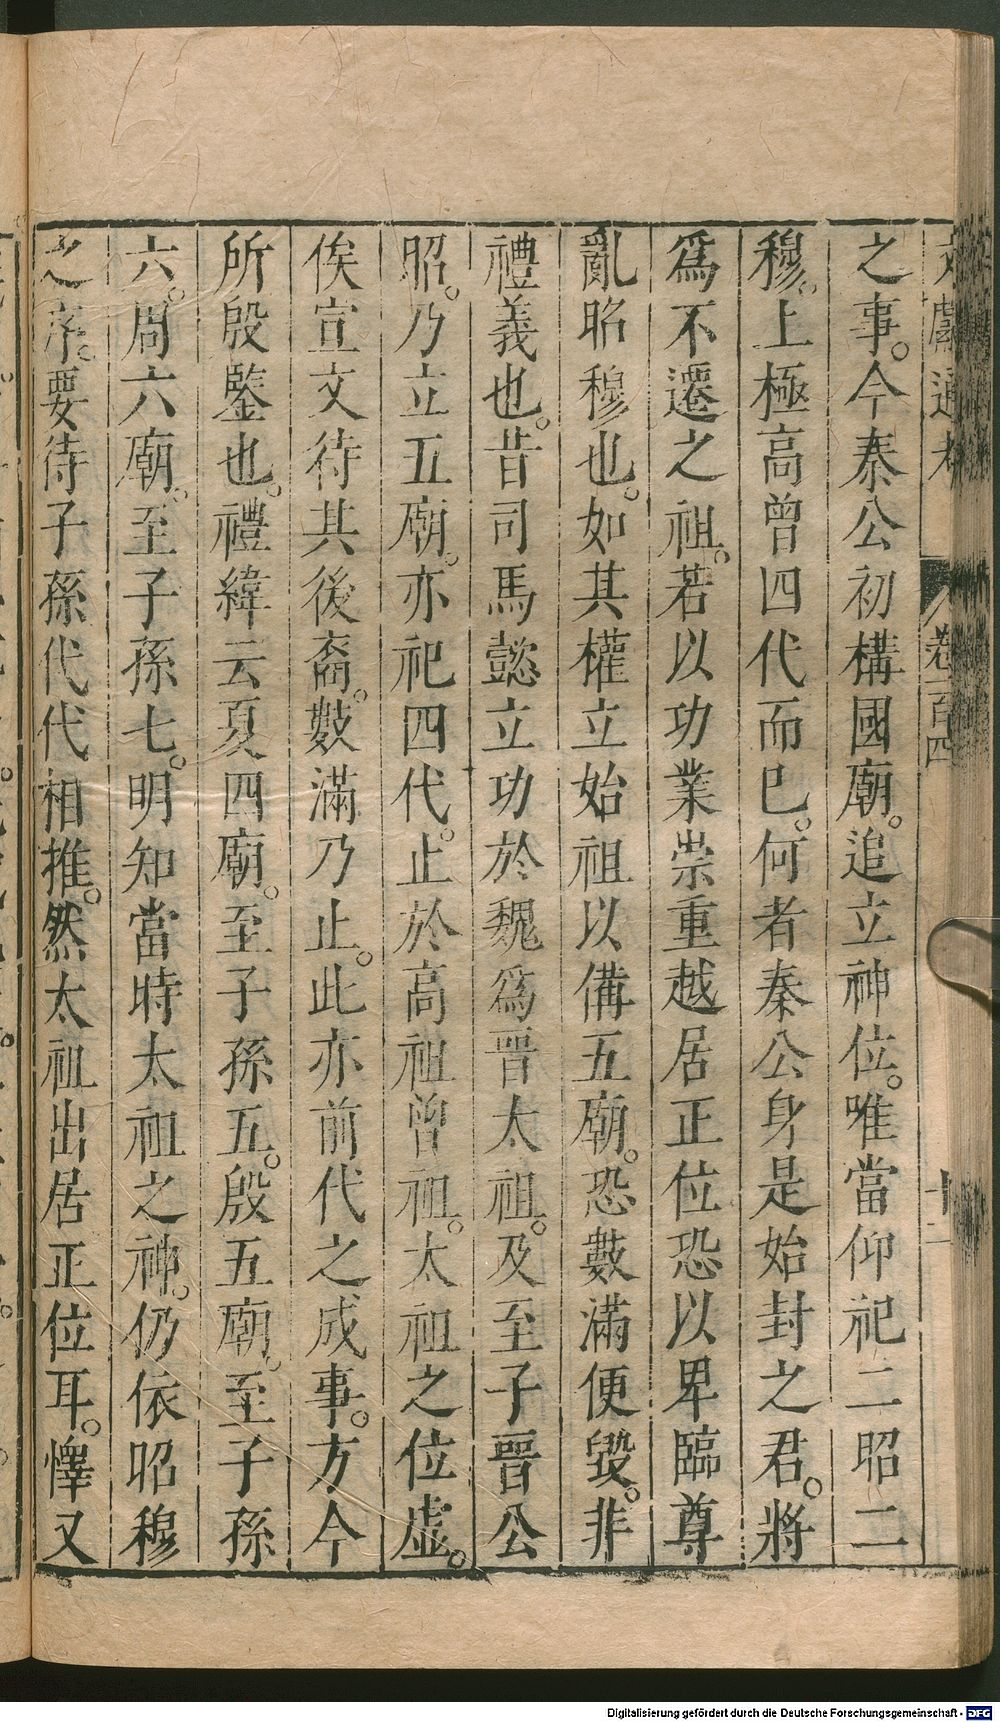 文獻通考 卷一百四 十二
之事。今秦公初構國廟。追立神位。唯當仰祀二昭二
穆。上極高曾四代而已。何者秦公身是始封之君。將
爲不遷之祖。若以功業崇重越居正位恐以卑臨尊
亂昭穆也。如其權立始祖以備五廟。恐數滿便毀。非
禮義也。昔司馬懿立功於魏爲晉太祖。及至子晉公
昭。乃立五廟。亦祀四代。止於高祖曾祖。太祖之位虛
俟宣文待其後裔。數滿乃止。此亦前代之成事。方今
所殷鑒也。禮緯云夏四廟。至子孫五。殷五廟。至子孫
六。周六廟。至子孫七。明知當時太祖之神。仍依昭穆
之序。要待子孫代代相推。然太祖出居正位耳。懌又
Digitalisierung gefördert durch die Deutsche Forschungsgemeinschaft - DFG